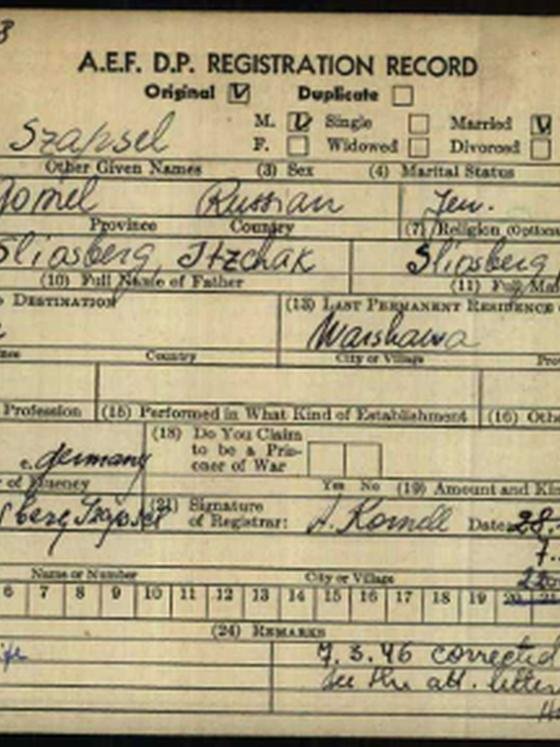 A.E.F. D.P. REGISTRATION RECORD
Original Duplicate
M. Single Married
Szapsel F. Widowed Divorced
Other Given Names (3) Sex (4) Marital Status
Gomel Russian Jew.
Province Country (7) Religion (Optional
Sliosberg, Itzchak Sliosberg
(10) Full Name of Father (11) Full Ma
DESTINATION (13) LAST PERMANENT RESIDENCE
Warshawa
Country City or Village Pro
Profession (15) Performed in What Kind of Establishment (16) Oth
(18) Do You Claim
e. Germany to be a Pris-
oner of War
of Fluency Yes No (19) Amount and Kin
sberg Szapsel (21) Signature of Registrar: A. Kornell Date: 28.
7.
Name or Number City or Village
6 7 8 9 10 11 12 13 14 15 16 17 18 19 20 21
(24) REMARKS
7.3.46 corrected
See the att. letter